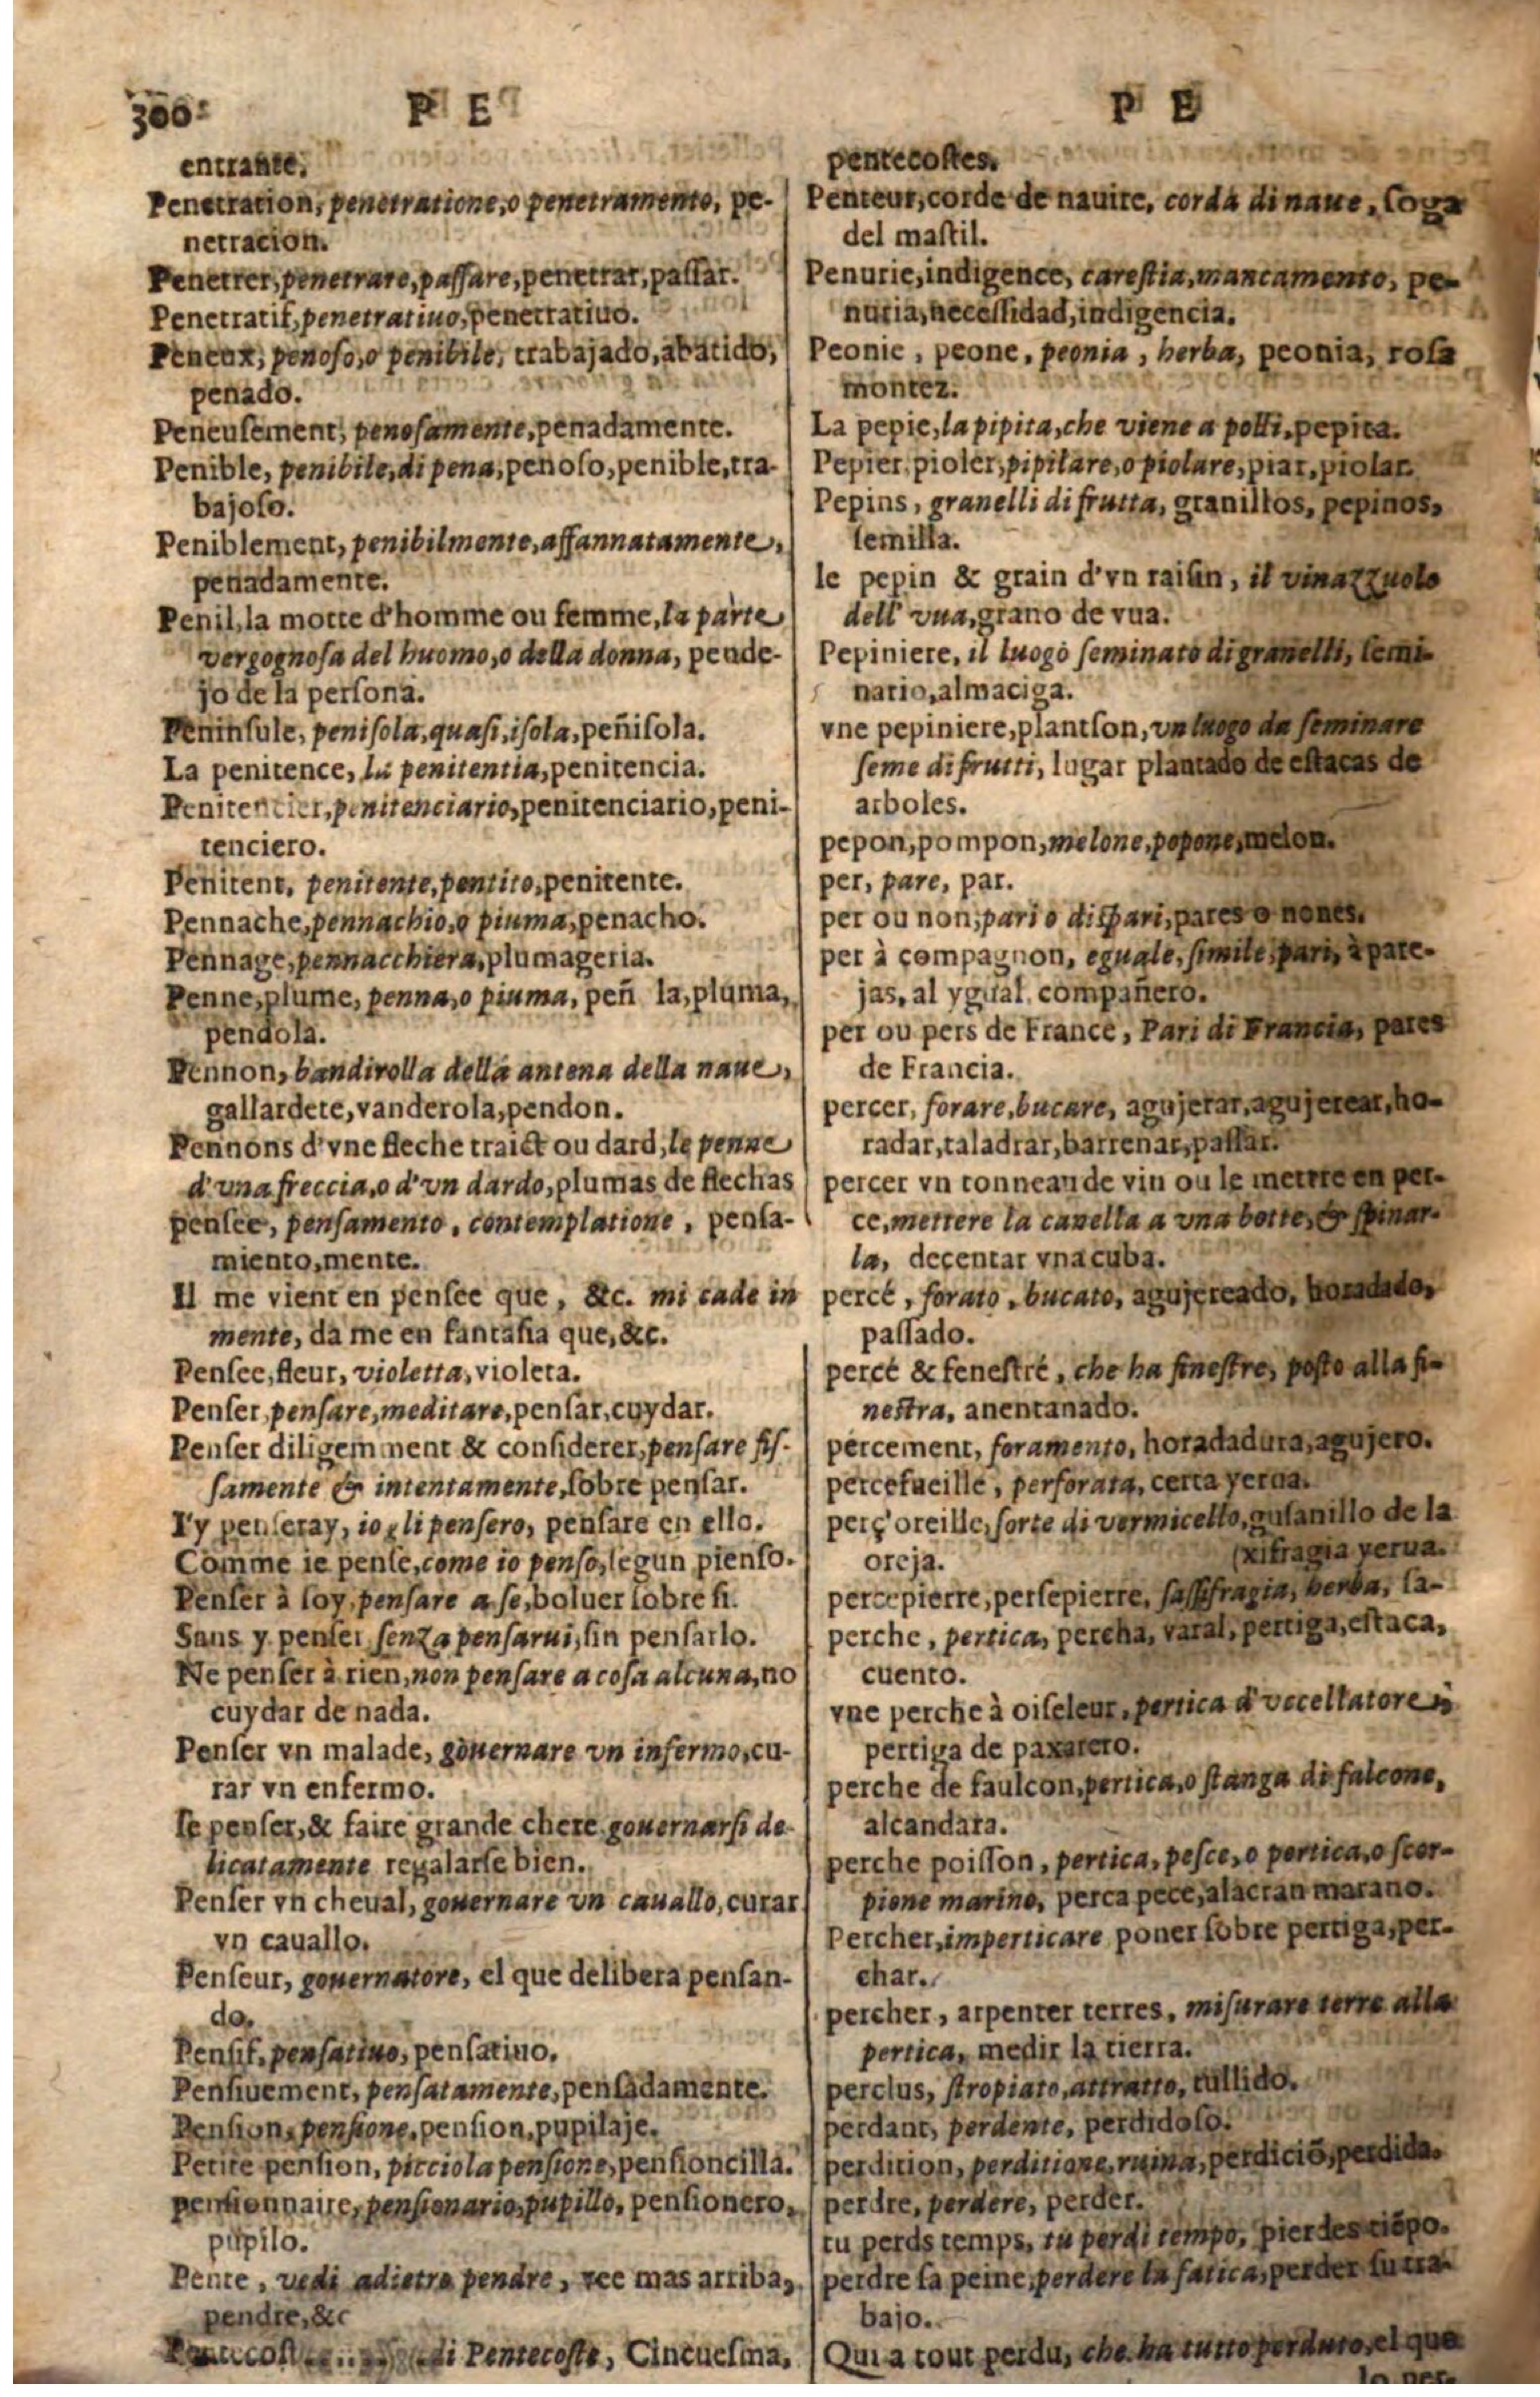 300
P E
entrante.
Penetration, penetratione, o penetramento, pe-
netracion.
Penetrer, penetrare, paſſare, penetrar, paſſar.
Penetratif, penetratiuo, penetratiuo.
Peneux, penoſo, o penibile, trabajado, abatido,
penado.
Peneuſement, penoſamente, penadamente.
Penible, penibile, di pena, penoſo, penible, tra-
bajoſo.
Peniblement, penibilmente, affannatamente,
penadamente.
Penil, la motte d'homme ou femme, la parte
vergognoſa del huomo, o della donna, pende-
jo de la perſona.
Peninſule, peniſola, quaſi, iſola, peñiſola.
La penitence, la penitentia, penitencia.
Penitencier, penitenciario, penitenciario, peni-
tenciero.
Penitent, penitente, pentito, penitente.
Pennache, pennachio, o piuma, penacho.
Pennage, pennacchiera, plumageria.
Penne, plume, penna, o piuma, peñ la, pluma,
pendola.
Pennon, bandirolla della antena della naue,
gallardete, vanderola, pendon.
Pennons d'vne fleche traict ou dard, le penne
d'vna freccia, o d'vn dardo, plumas de flechas
penſee, penſamento, contemplatione, penſa-
miento, mente.
Il me vient en penſee que, &c. mi cade in
mente, da me en fantaſia que, &c.
Penſee, fleur, violetta, violeta.
Penſer, penſare, meditare, penſar, cuydar.
Penſer diligemment & conſiderer, penſare fiſ-
ſamente & intentamente, ſobre penſar.
I'y penſeray, io gli penſero, penſare en ello.
Comme ie penſe, come io penſo, ſegun pienſo.
Penſer à ſoy, penſare a ſe, boluer ſobre ſi.
Sans y penſer ſenza penſarui, ſin penſarlo.
Ne penſer à rien, non penſare a coſa alcuna, no
cuydar de nada.
Penſer vn malade, gouernare vn infermo, cu-
rar vn enfermo.
ſe penſer, & faire grande chere gouernarſi de-
licatamente regalarſe bien.
Penſer vn cheual, gouernare vn cauallo, curar
vn cauallo.
Penſeur, gouernatore, el que delibera penſan-
do.
Penſif, penſatiuo, penſatiuo.
Penſiuement, penſatamente, penſadamente.
Penſion, penſione, penſion, pupilaje.
Petite penſion, picciola penſione, penſioncilla.
penſionnaire, penſionario, pupillo, penſionero,
pupilo.
Pente, vedi adietro pendre, vee mas arriba,
pendre, &c
di Pentecoſte, Cincueſma,
P E
pentecoſtes.
Penteur, corde de nauire, corda di naue, ſoga
del maſtil.
Penurie, indigence, careſtia, mancamento, pe-
nuria, neceſſidad, indigencia.
Peonie, peone, peonia, herba, peonia, roſa
montez.
La pepie, la pipita, che viene a polli, pepita.
Pepier, pioler, pipilare, o piolare, piar, piolar.
Pepins, granelli di frutta, granillos, pepinos,
ſemilla.
le pepin & grain d'vn raiſin, il vinazzuolo
dell' vua, grano de vua.
Pepiniere, il luogo ſeminato di granelli, ſemi-
nario, almaciga.
vne pepiniere, plantſon, vn luogo da ſeminare
ſeme di frutti, lugar plantado de eſtacas de
arboles.
pepon, pompon, melone, popone, melon.
per, pare, par.
per ou non, pari o diſpari, pares o nones.
per à compagnon, eguale, ſimile, pari, à pare-
jas, al ygual compañero.
per ou pers de France, Pari di Francia, pares
de Francia.
percer, forare, bucare, agujerar, agujerear, ho-
radar, taladrar, barrenar, paſſar.
percer vn tonneau de vin ou le mettre en per-
ce, mettere la canella a vna botte, & ſpinar-
la, decentar vna cuba.
percé, forato, bucato, agujereado, horadado,
paſſado.
percé & feneſtré, che ha fineſtre, poſto alla fi-
neſtra, anentanado.
percement, foramento, horadadura, agujero.
percefueille, perforata, certa yerua.
perç'oreille, ſorte di vermicello, guſanillo de la
oreja. (xifragia yerua.
percepierre, perſepierre, ſaſſifragia, herba, ſa-
perche, pertica, percha, varal, pertiga, eſtaca,
cuento.
vne perche à oiſeleur, pertica d'vccellatore,
pertiga de paxarero.
perche de faulcon, pertica, o ſtanga di falcone,
alcandara.
perche poiſſon, pertica, peſce, o pertica, o ſcor-
pione marino, perca pece, alacran marano.
Percher, imperticare poner ſobre pertiga, per-
char.
percher, arpenter terres, miſurare terre alla
pertica, medir la tierra.
perclus, ſtropiato, attratto, tullido.
perdant, perdente, perdidoſo.
perdition, perditione, ruina, perdiciõ, perdida.
perdre, perdere, perder.
tu perds temps, tu perdi tempo, pierdes tiẽpo.
perdre ſa peine, perdere la fatica, perder ſu tra-
bajo.
Qui a tout perdu, che ha tutto perduto, el que
lo per-